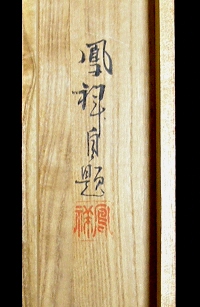 鳳祥自題
鳳祥